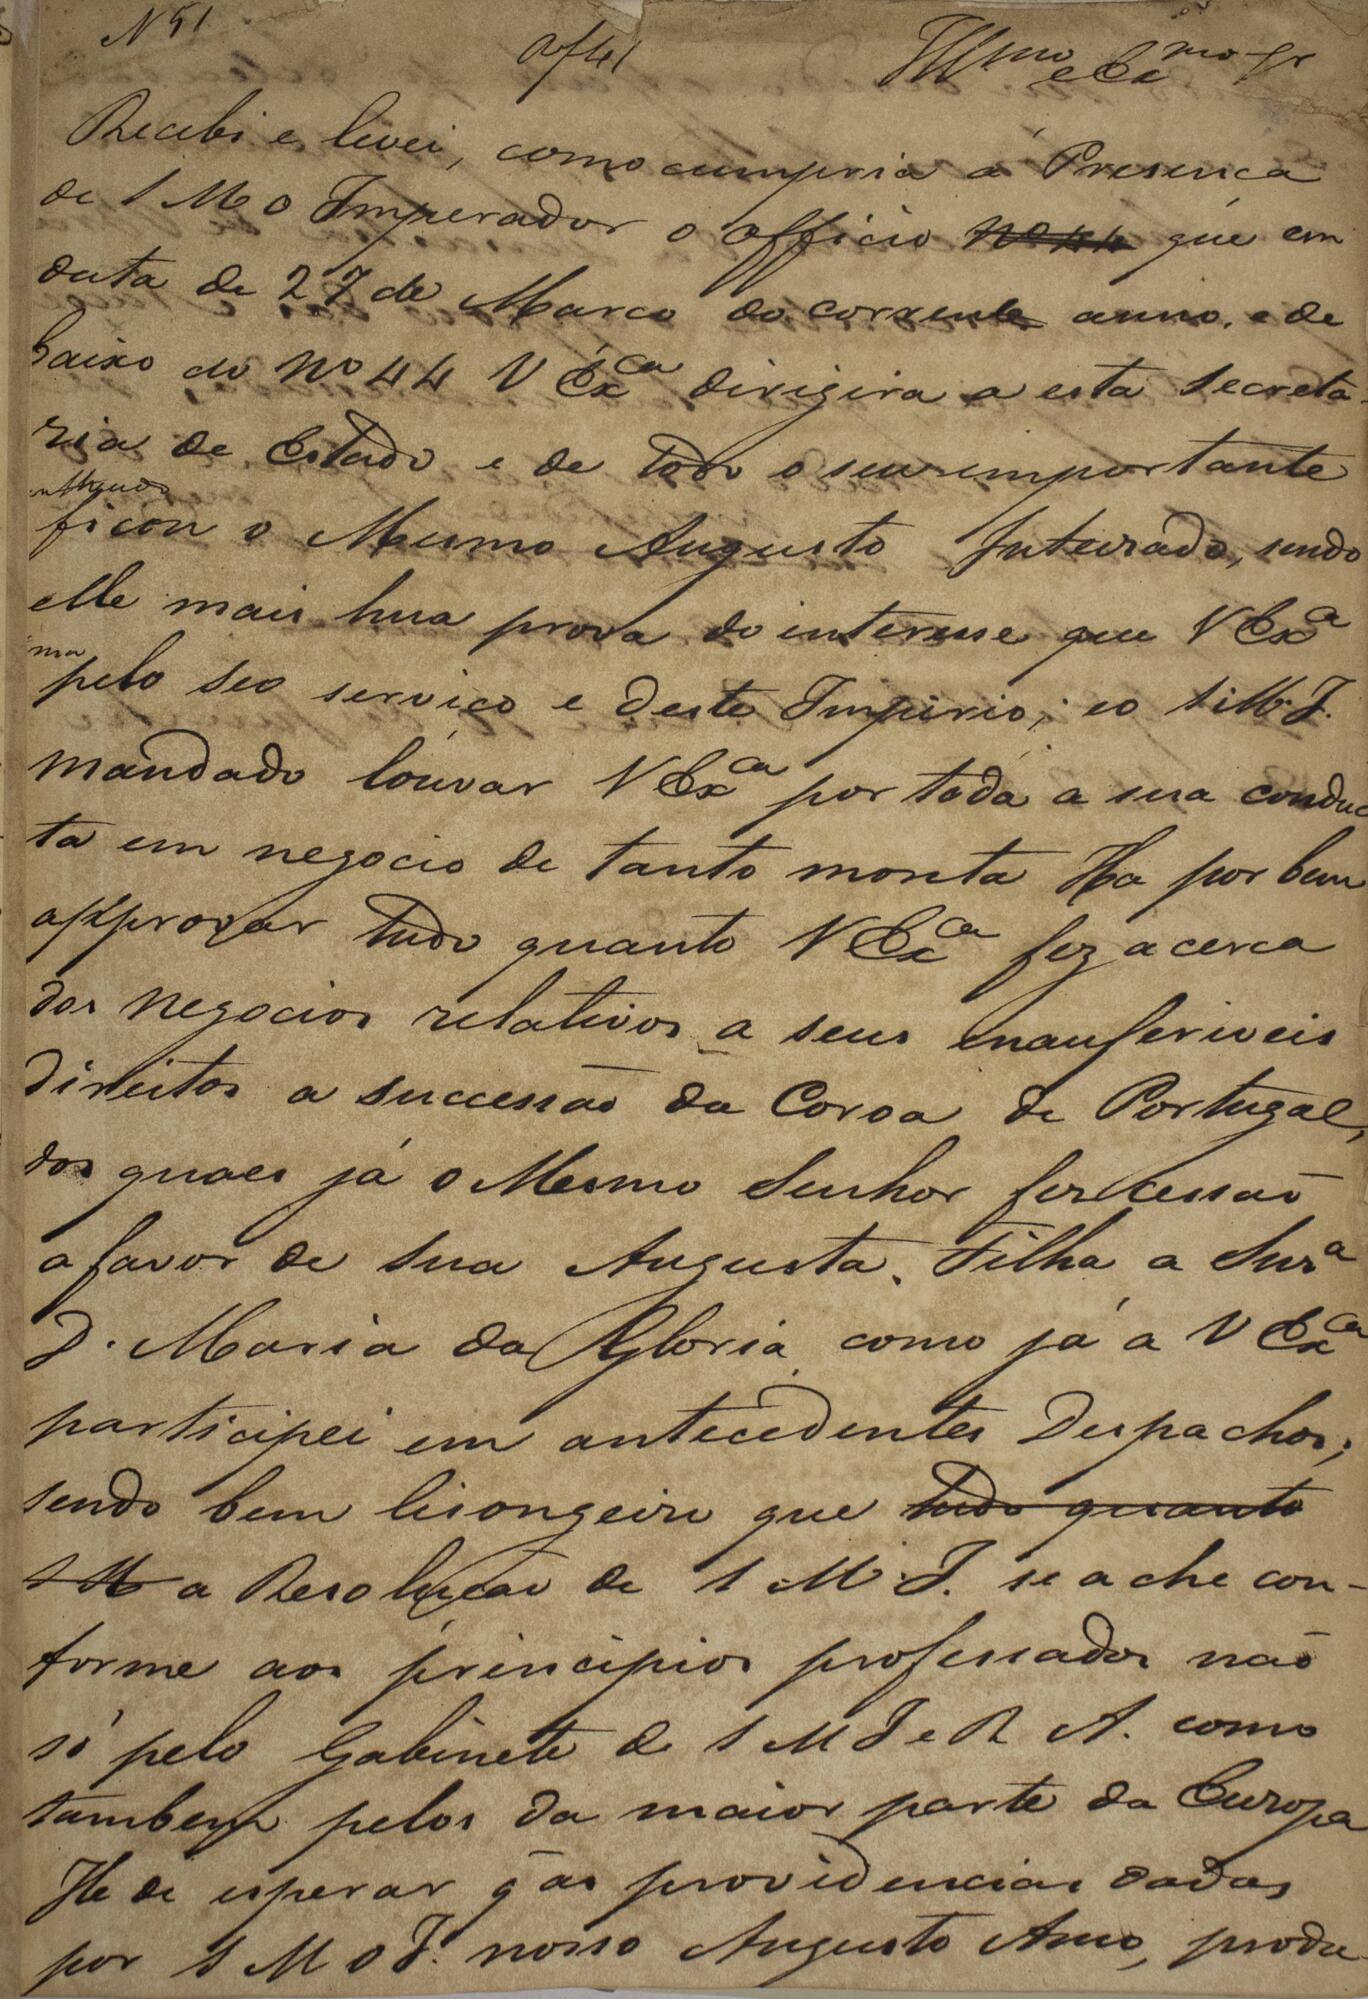 N 51
Illmo e Exmo Sr
Recebi e levei, como cumpria á Presença
de S M o Imperador o officio No 44 que em
data de 27 de Março do corrente anno, e de
baixo do No 44 V Exca dirigira a esta Secreta-
ria de Estado e de todo o seu importante
ficou o Mesmo Augusto Inteirado, sendo
elle mais hua prova do interesse que V Exa
pelo seo serviço e deste Imperio; eo S. M. I.
mandado louvar V Exca por toda a sua conduc
ta em negocio de tanto monta Ha por bem
approvar tudo quanto V Exca fez acerca
dos negocios relativos a seus inauferiveis
direitos a successão da Coroa de Portugal,
dos quaes já o Mesmo Senhor fez cessão
a favor de sua Augusta Filha a Snra
D. Maria da Gloria como já a V Exca
participei em antecedentes Despachos;
sendo bem lisongeiro que tudo quanto
S M a Resolução de S M. I. se ache con-
forme aos principios professados não
só pelo Gabinete de S M I e R A. como
tambem pelos da maior parte da Europa
He de esperar q̃ as providencias dadas
por S M O I. nosso Augusto Amo, produ